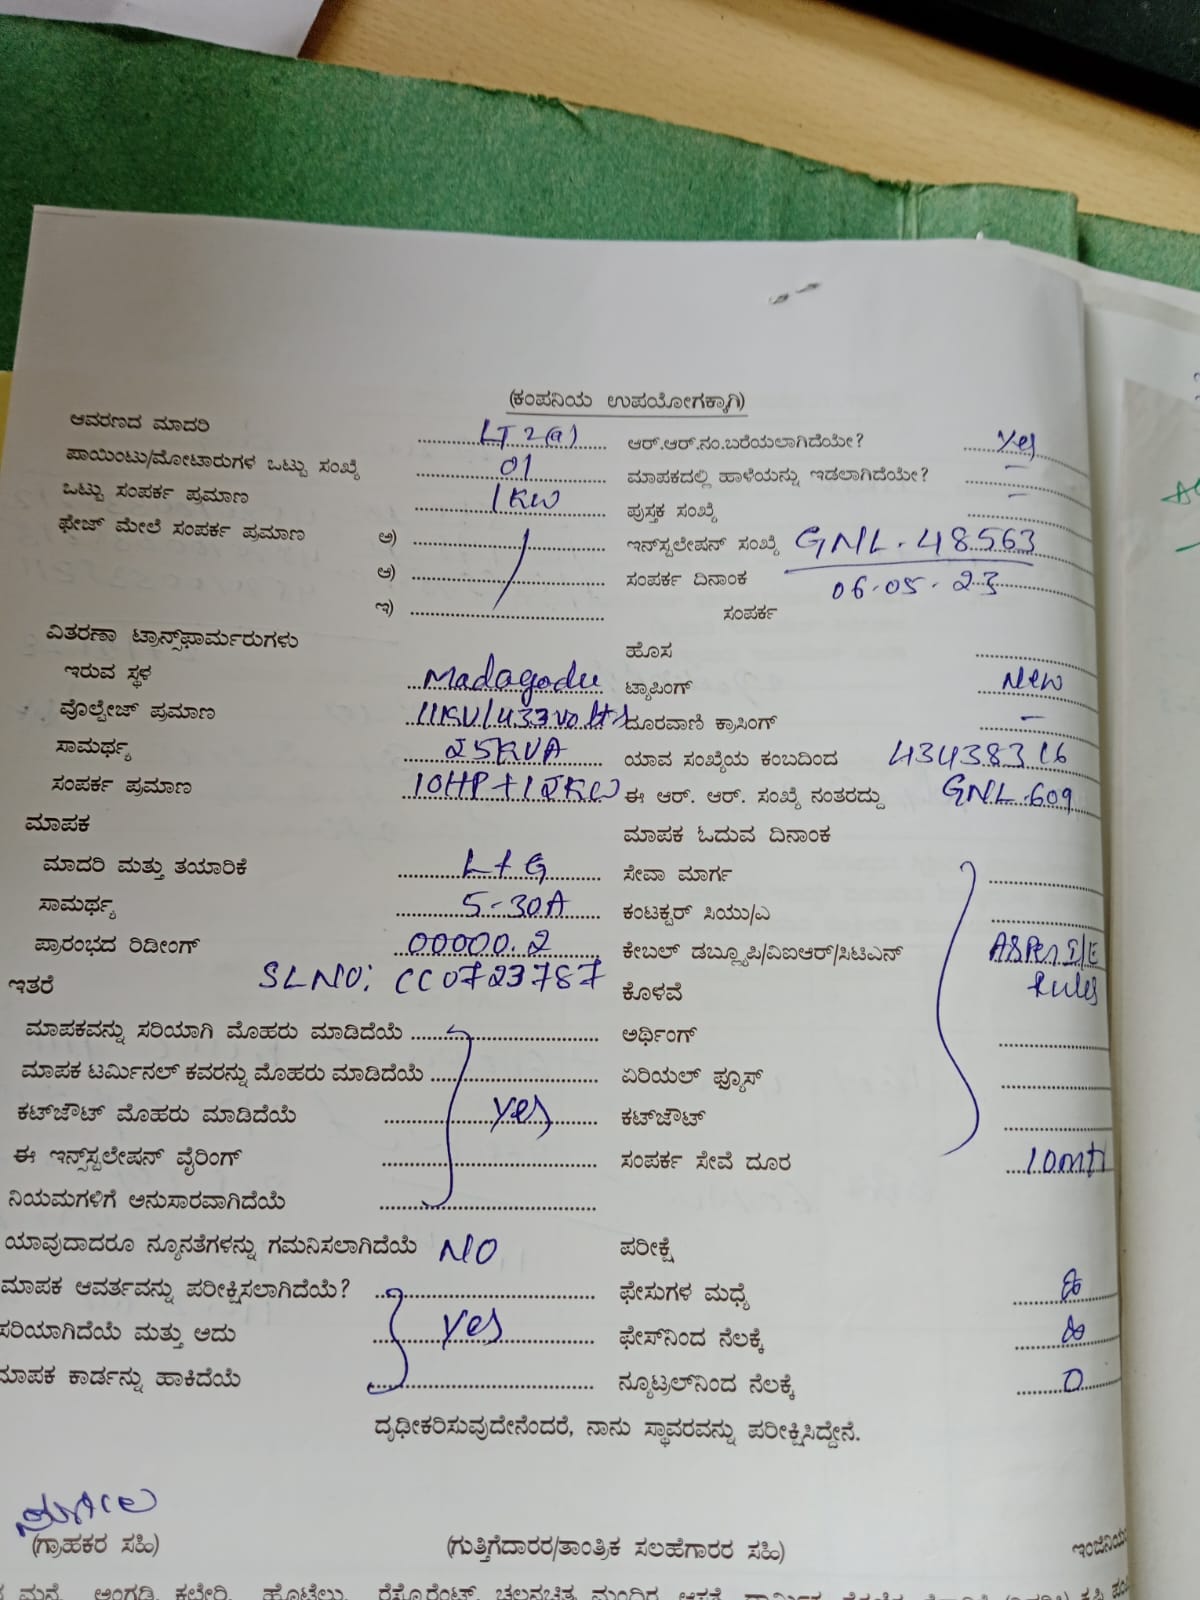 (ಕಂಪನಿಯ ಉಪಯೋಗಕ್ಕಾಗಿ)
ಆವರಣದ ಮಾದರಿ LT 2(a) ಆರ್.ಆರ್.ನಂ.ಬರೆಯಲಾಗಿದೆಯೇ? Yes
ಪಾಯಿಂಟು/ಮೋಟಾರುಗಳ ಒಟ್ಟು ಸಂಖ್ಯೆ 01 ಮಾಪಕದಲ್ಲಿ ಹಾಳೆಯನ್ನು ಇಡಲಾಗಿದೆಯೇ? –
ಒಟ್ಟು ಸಂಪರ್ಕ ಪ್ರಮಾಣ 1KW ಪುಸ್ತಕ ಸಂಖ್ಯೆ –
ಫೇಜ್ ಮೇಲೆ ಸಂಪರ್ಕ ಪ್ರಮಾಣ ಅ) ಇನ್‌ಸ್ಟಲೇಷನ್ ಸಂಖ್ಯೆ GNL.48563
ಆ) ಸಂಪರ್ಕ ದಿನಾಂಕ 06.05.23
ಇ) ಸಂಪರ್ಕ
ವಿತರಣಾ ಟ್ರಾನ್ಸ್‌ಫಾರ್ಮರುಗಳು ಹೊಸ
ಇರುವ ಸ್ಥಳ Madagodu ಟ್ಯಾಪಿಂಗ್ New
ವೊಲ್ಟೇಜ್ ಪ್ರಮಾಣ 11KV/433volts ದೂರವಾಣಿ ಕ್ರಾಸಿಂಗ್ –
ಸಾಮರ್ಥ್ಯ 25KVA ಯಾವ ಸಂಖ್ಯೆಯ ಕಂಬದಿಂದ 43438316
ಸಂಪರ್ಕ ಪ್ರಮಾಣ 10HP+12KW ಈ ಆರ್. ಆರ್. ಸಂಖ್ಯೆ ನಂತರದ್ದು GNL.609
ಮಾಪಕ ಮಾಪಕ ಓದುವ ದಿನಾಂಕ
ಮಾದರಿ ಮತ್ತು ತಯಾರಿಕೆ L+G ಸೇವಾ ಮಾರ್ಗ
ಸಾಮರ್ಥ್ಯ 5-30A ಕಂಟಕ್ಟರ್ ಸಿಯು/ಎ
ಪ್ರಾರಂಭದ ರಿಡೀಂಗ್ 00000.2 ಕೇಬಲ್ ಡಬ್ಲ್ಯೂಪಿ/ವಿಐಆರ್/ಸಿಟಿಎನ್ ASPer I/E
ಇತರೆ SLNO: CC0723787 ಕೊಳವೆ Rules
ಮಾಪಕವನ್ನು ಸರಿಯಾಗಿ ಮೊಹರು ಮಾಡಿದೆಯೆ ಅರ್ಥಿಂಗ್
ಮಾಪಕ ಟರ್ಮಿನಲ್ ಕವರನ್ನು ಮೊಹರು ಮಾಡಿದೆಯೆ ಏರಿಯಲ್ ಫ್ಯೂಸ್
ಕಟ್‌ಔಟ್ ಮೊಹರು ಮಾಡಿದೆಯೆ Yes ಕಟ್‌ಔಟ್
ಈ ಇನ್ಸ್‌ಸ್ಟಲೇಷನ್ ವೈರಿಂಗ್ ಸಂಪರ್ಕ ಸೇವೆ ದೂರ 10mtr
ನಿಯಮಗಳಿಗೆ ಅನುಸಾರವಾಗಿದೆಯೆ
ಯಾವುದಾದರೂ ನ್ಯೂನತೆಗಳನ್ನು ಗಮನಿಸಲಾಗಿದೆಯೆ NO ಪರೀಕ್ಷೆ
ಮಾಪಕ ಆವರ್ತವನ್ನು ಪರೀಕ್ಷಿಸಲಾಗಿದೆಯೆ? ಫೇಸುಗಳ ಮಧ್ಯೆ
ಸರಿಯಾಗಿದೆಯೆ ಮತ್ತು ಅದು Yes ಫೇಸ್‌ನಿಂದ ನೆಲಕ್ಕೆ
ಮಾಪಕ ಕಾರ್ಡನ್ನು ಹಾಕಿದೆಯೆ ನ್ಯೂಟ್ರಲ್‌ನಿಂದ ನೆಲಕ್ಕೆ 0
ದೃಢೀಕರಿಸುವುದೇನೆಂದರೆ, ನಾನು ಸ್ಥಾವರವನ್ನು ಪರೀಕ್ಷಿಸಿದ್ದೇನೆ.
(ಗ್ರಾಹಕರ ಸಹಿ) (ಗುತ್ತಿಗೆದಾರರ/ತಾಂತ್ರಿಕ ಸಲಹೆಗಾರರ ಸಹಿ)